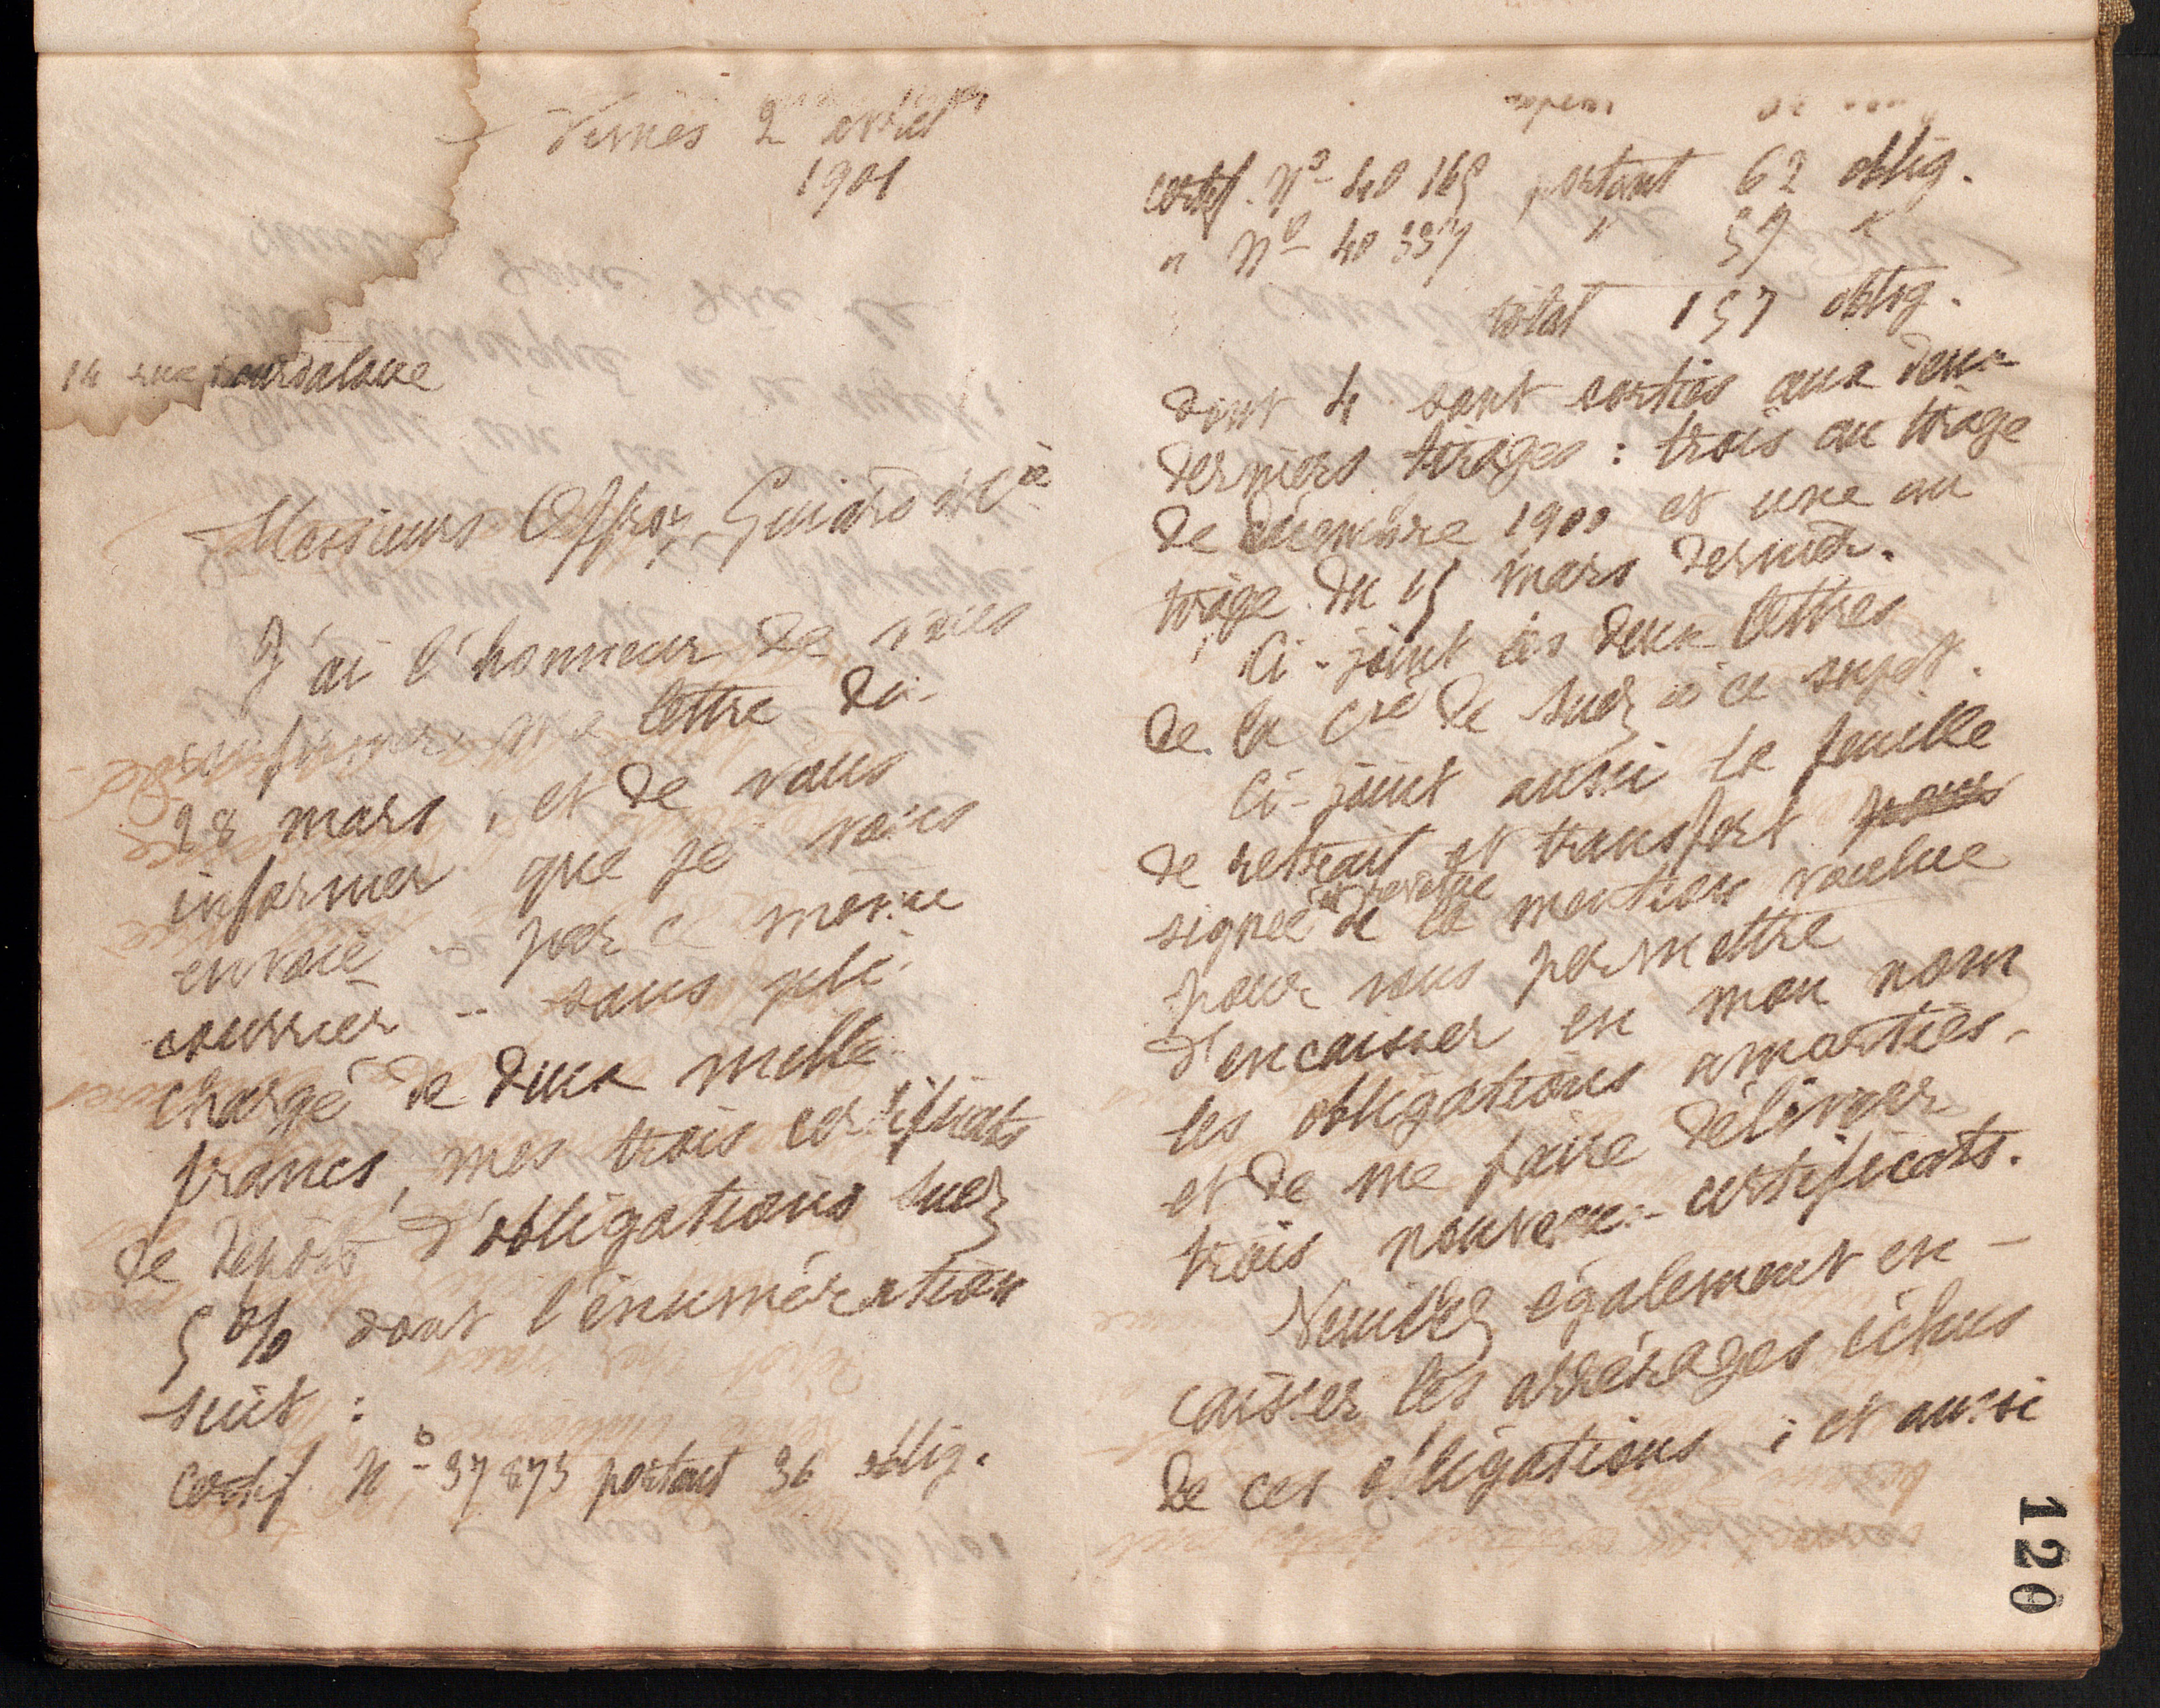 Nîmes 2 avril
1901
14 rue Bourdaloue
Messieurs Offroy, Guiard et Cie
J'ai l'honneur de vous
confirmer ma lettre du
28 mars, et de vous
informer que je vous
envoie - par ce même
courrier - sous pli
chargé de deux mille
francs, mes trois certificats
de dépôts d'obligations Suez
5 % dont l'énumération
suit :
Certif. No 37 873 portant 36 oblig.
certif. No 40 165 portant 62 oblig.
" No 40 337 " 59 "
total 157 oblig.
dont 4 sont sorties aux deux
derniers tirages : trois au tirage
de décembre 1900 et une au
tirage du 15 mars dernier.
Ci-joint les deux lettres
de la Cie de Suez à ce sujet.
Ci-joint aussi la feuille
de retrait et transfert pour
signée et revêtue de la mention voulue
pour vous permettre
d'encaisser en mon nom
les obligations amorties
et de me faire délivrer
trois nouveaux certificats.
Veuillez également en-
caisser les arrérages échus
de ces obligations ; et aussi
120